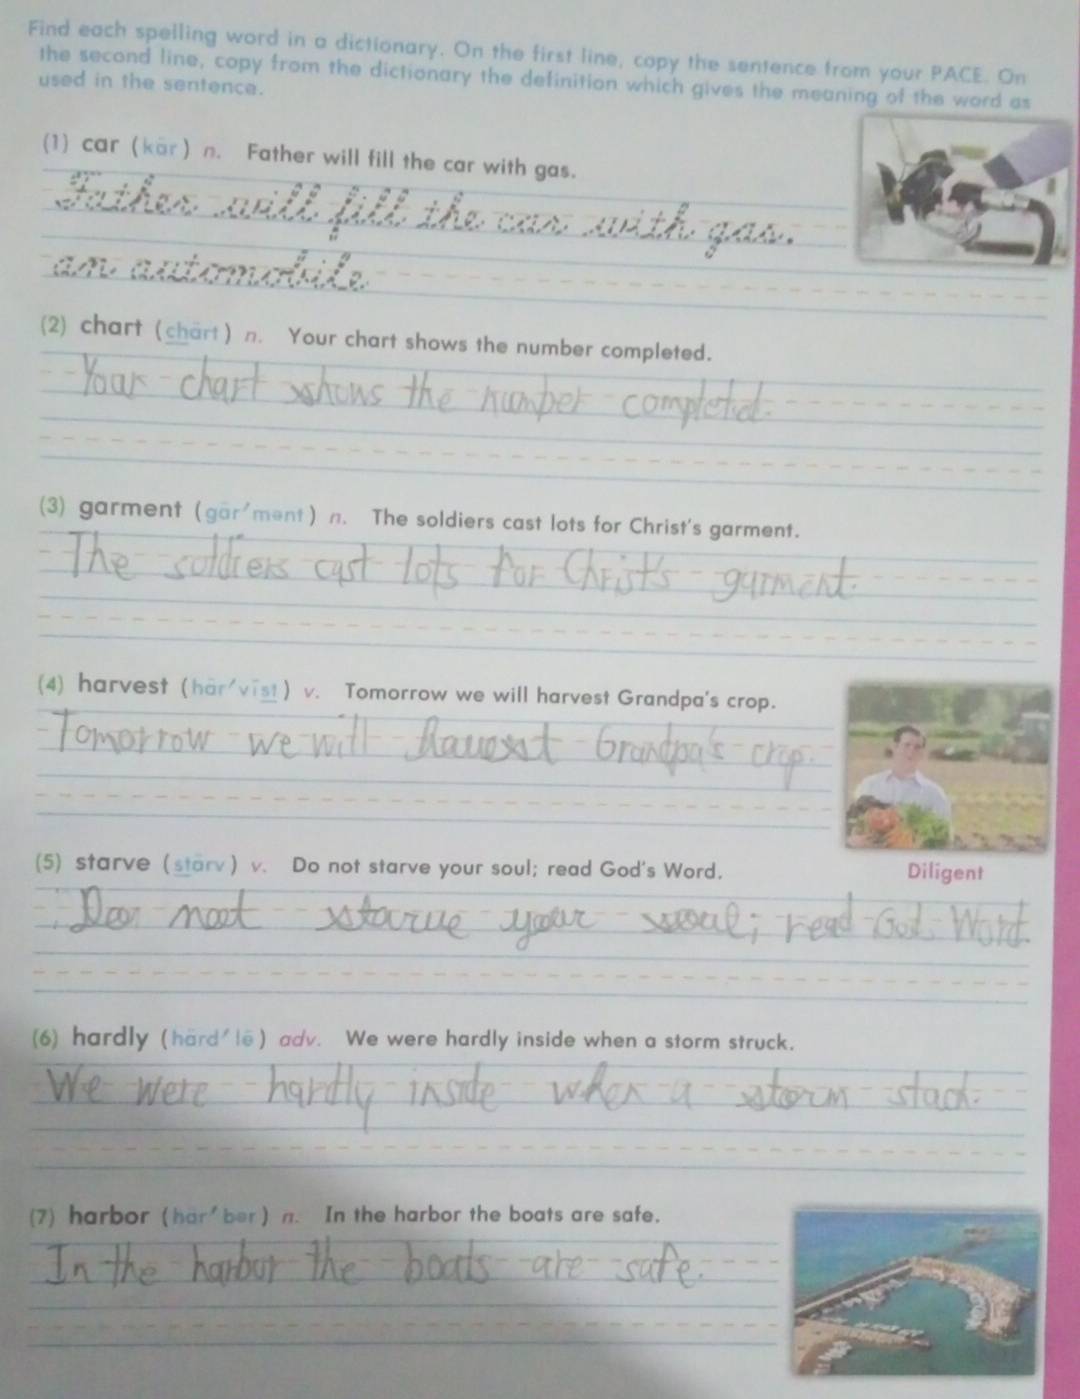 Find each spelling word in a dictionary. On the first line, copy the sentence from your PACE. On
the second line, copy from the dictionary the definition which gives the meaning of the word as
used in the sentence.
(1) car (kär) n. Father will fill the car with gas.
Father will fill the car with gas.
an automobile
(2) chart (chärt) n. Your chart shows the number completed.
Your chart shows the number completed.
(3) garment (gär′mənt) n. The soldiers cast lots for Christ's garment.
The soldiers cast lots for Christ's garment.
(4) harvest (här′vĭst) v. Tomorrow we will harvest Grandpa's crop.
Tomorrow we will Grandpa's crop.
Diligent
(5) starve (stärv) v. Do not starve your soul; read God's Word.
starve your soul; read God. Word.
(6) hardly (härd′lē) adv. We were hardly inside when a storm struck.
We were hardly inside when a storm
(7) harbor (här′bər) n. In the harbor the boats are safe.
In the harbor the boats are safe.